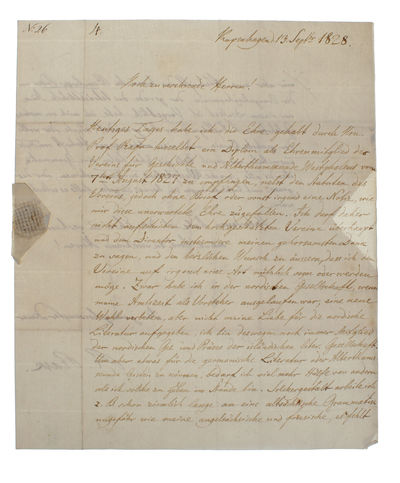 N. 26 4.
Kopenhagen 13 Septbr 1828.
Hoch zu verehrende Herren!
Heutiges Tages habe ich die Ehre gehabt durch Hrn.
Prof. Rafn ein Diplom als Ehrenmitglied des
Vereins für Geschichte und Alterthumskunde Westphalens vom
7ten August 1827 zu empfangen, nebst den Statuten des
Vereins, jedoch ohne Brief oder sonst irgend eine Notiz, wie
mir diese unerwartete Ehre zugefallen. Ich darf daher
nicht dem hochgeehrten Vereine überhaupt
und dem Director insbesondere meinen gehorsamsten Dank
zu sagen, und den herzlichen Wunsch zu äussern, dass ich dem
Vereine auf irgend eine Art nützlich sein oder werden
möge. Zwar habe ich in der nordischen Gesellschaft, wenn
meine Amtszeit als Vorsteher ausgelaufen war, eine neue
Wahl verbeten, aber nicht meine Liebe für die nordische
Literatur aufgegeben, ich bin deswegen noch immer Mitglied
der nordischen Ges. und Präses der isländischen liter. Gesellschaft.
Um aber etwas für die germanische Literatur oder Alterthums
kunde leisten zu können, bedarf ich viel mehr Hülfe von andern
als ich selbst zu geben im Stande bin. Solchergestalt arbeite ich
z. B. schon ziemlich lange an eine altdeutsche Grammatik
ungefähr wie meine angelsächsische und friesische, es fehlt